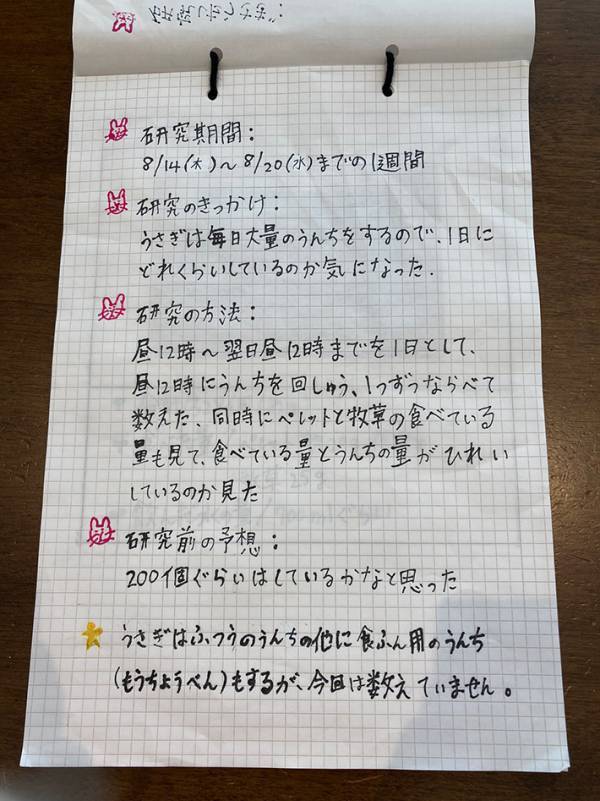 研究期間:
8/14(木)~8/20(水)までの1週間
研究のきっかけ:
うさぎは毎日大量のうんちをするので、1日に
どれくらいしているのか気になった.
研究の方法:
昼12時~翌日昼12時までを1日として、
昼12時にうんちを回しゅう、1つずつならべて
数えた、同時にペレットと牧草の食べている
量も見て、食べている量とうんちの量がひれい
しているのか見た
研究前の予想:
200個ぐらいはしているかなと思った
うさぎはふつうのうんちの他に食ふん用のうんち
(もうちょうべん)もするが、今回は数えていません。